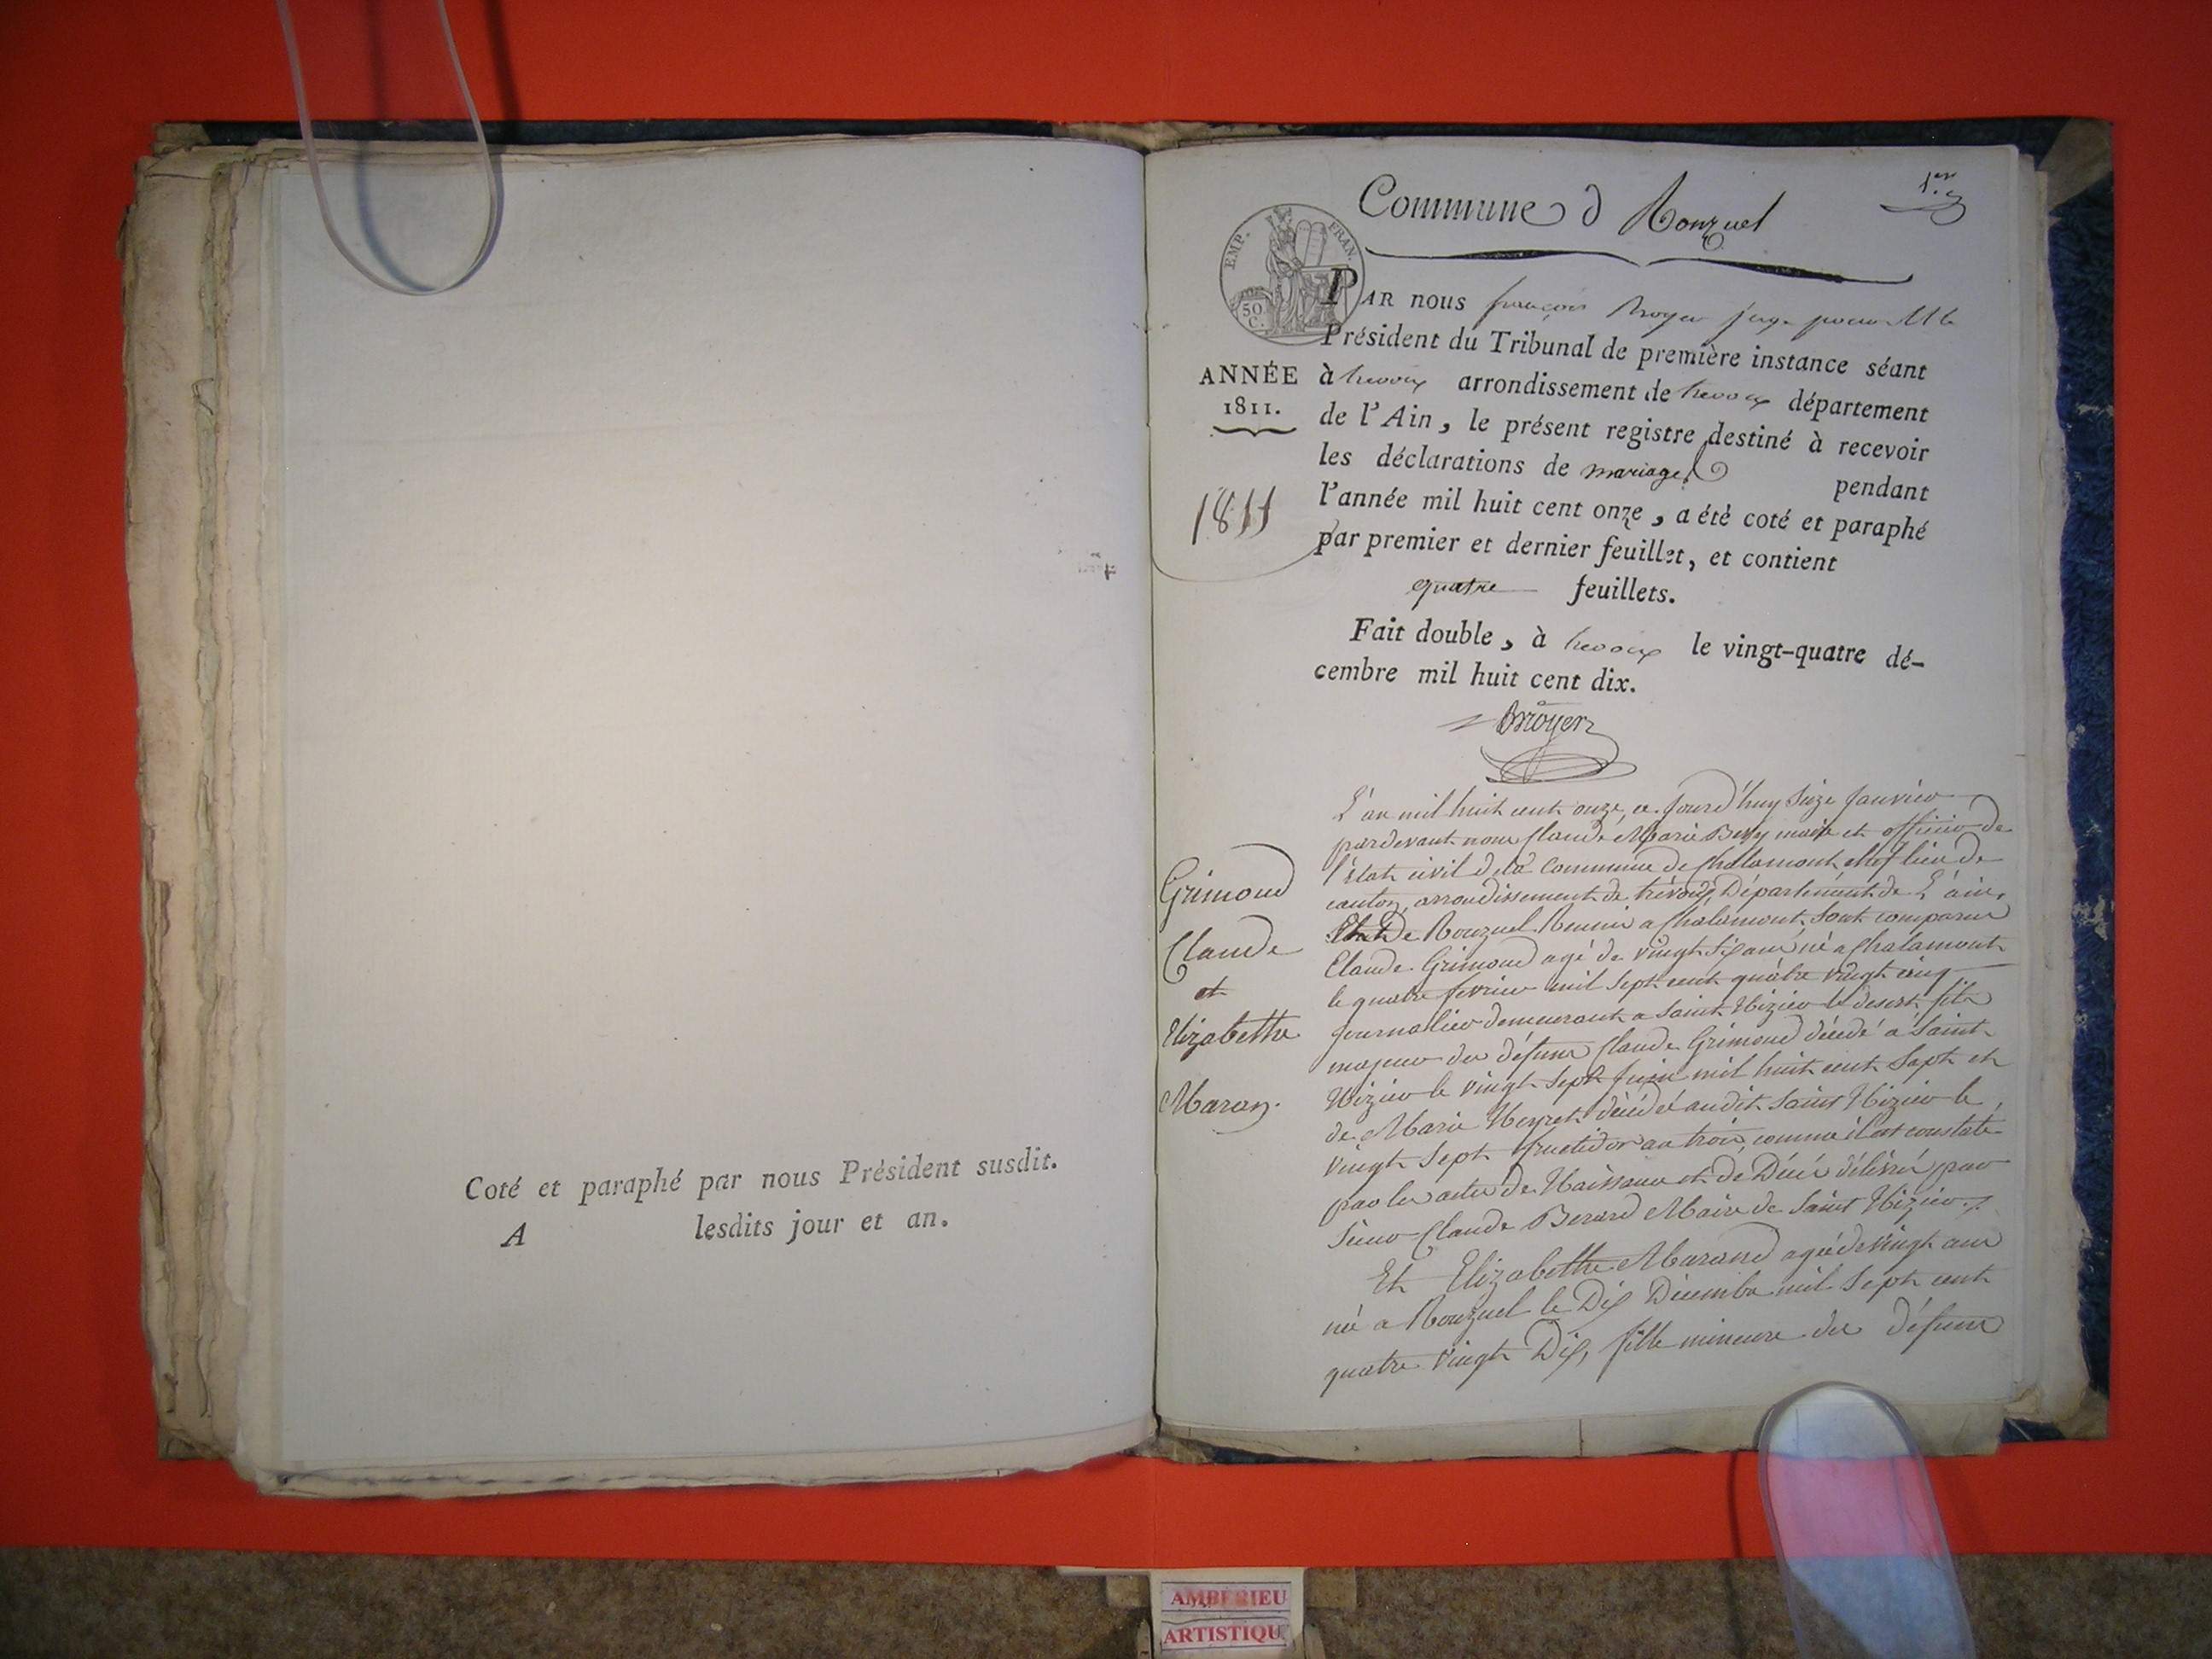 Coté et paraphé par nous Président susdit.
A lesdits jour et an.
1.er
Commune d Ronzuel
EMP. FRAN.
50
C.
PAR nous françois Broyer juge pour M.le
Président du Tribunal de première instance séant
ANNÉE
1811.
à trevoux arrondissement de trevoux département
de l'Ain, le présent registre destiné à recevoir
les déclarations de mariages pendant
1811
l'année mil huit cent onze, a été coté et paraphé
par premier et dernier feuillet, et contient
quatre feuillets.
Fait double, à trevoux le vingt-quatre dé-
cembre mil huit cent dix.
Broyer
Grimoud
Claude
et
Elizabethe
Maran.
L'an mil huit cent onze, ce jourd'huy Seize janvier
pardevant nous Claude Marie maire et officier de
l'état civil de la Commune de Chalamont chef lieu de
canton, arrondissement de trévoux, Département de L'ain,
De Ronzuel Reunie a Chalamont, sont comparus
Claude Grimoud agé de vingt six ans né a Chalamont
le quatre fevrier mil sept cent quatre vingt cinq
journalier demeurant a Saint Nizier le desert fils
majeur de défunt Claude Grimoud décédé a Saint
Nizier le vingt sept juin mil huit cent Sept et
de Marie Neyret décédée audit Saint Nizier le
vingt Sept fructidor an trois, comme il est constaté
par les actes de Naissance et de Décés délivrés par
Sieur Claude Berard Maire de Saint Nizier.
Et Elizabethe Marand agée de vingt ans
née a Ronzuel le Dix Decembre mil Sept cent
quatre vingt Dix, fille mineure de défunt
AMBERIEU
ARTISTIQU